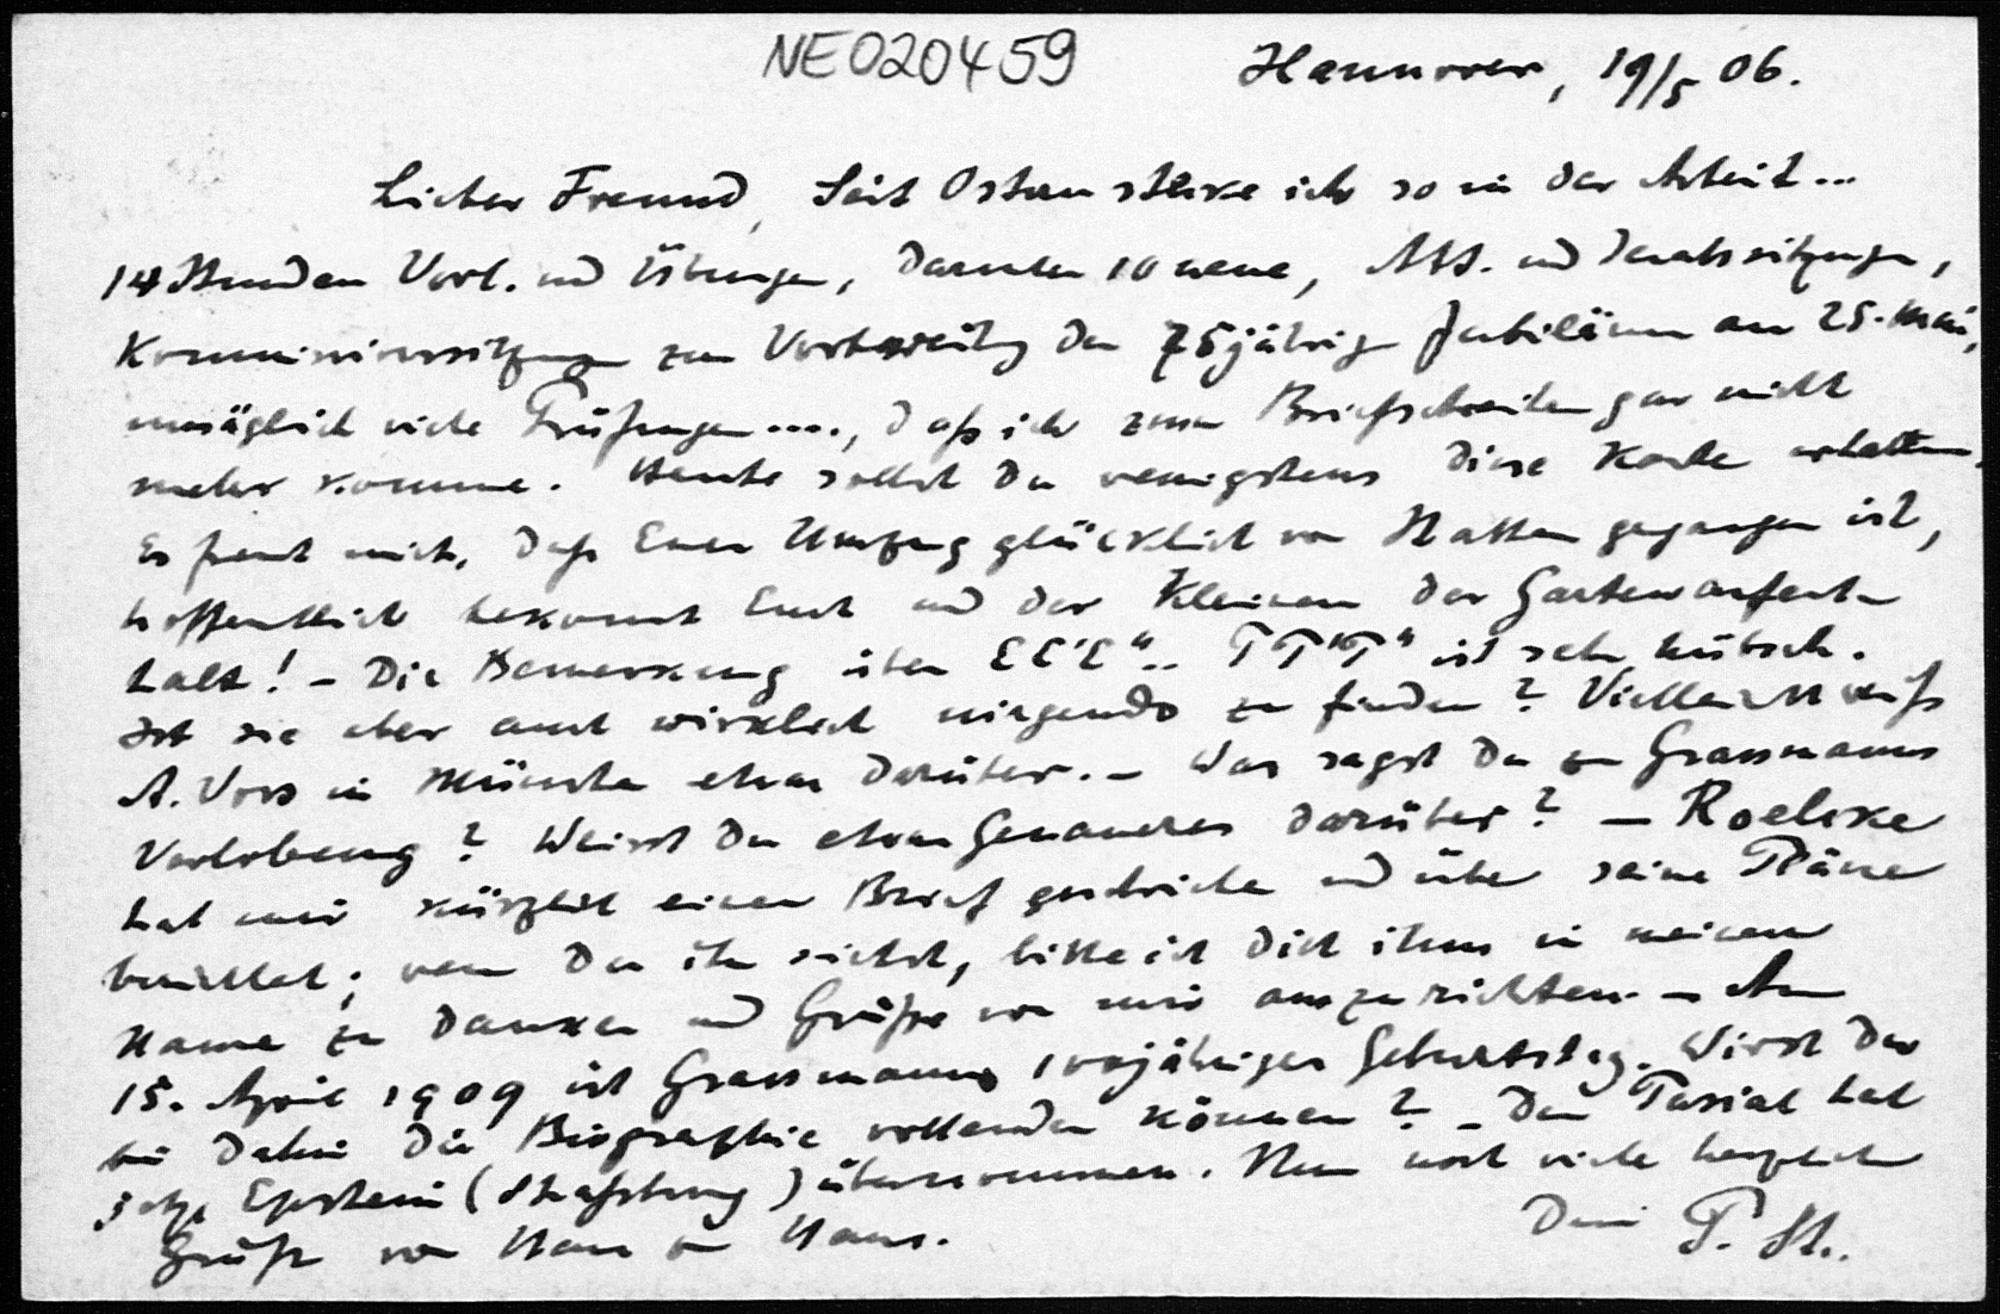 NE020459
Hannover, 19/5 06.
Lieber Freund, Seit Ostern stecke ich so in der Arbeit...
14 Stunden Vorl. und Übungen, darunter 10 neue, Abt. und Senatssitzungen,
Kommissionssitzungen zur Vorbereitung des 75jährigen Jubiläums am 25. Mai,
unsäglich viele Prüfungen...., daß ich zum Briefschreiben gar nicht
mehr komme. Heute sollst Du wenigstens diese Karte erhalten.
Es freut mich, daß Euer Umzug glücklich von Statten gegangen ist,
hoffentlich bekommt Euch und der Kleinen der Gartenaufent-
halt! – Die Bemerkung über E E' E".. T T' T" ist sehr hübsch.
Ist sie aber auch wirklich nirgends zu finden? Vielleicht weiß
A. Voss in München etwas darüber. – Was sagst Du zu Grassmanns
Verlobung? Weisst Du etwas Genaueres darüber? – Roelcke
hat mir kürzlich einen Brief geschrieben und über seine Pläne
berichtet; wenn Du ihn siehst, bitte ich Dich ihm in meinem
Name zu danken und Grüße von mir auszurichten. – Am
15. April 1909 ist Grassmanns 100jähriger Geburtstag. Wirst Du
bis dahin die Biographie vollenden können? – Den Pascal hat
jetzt Epstein (Straßburg) übernommen. Nun noch viele herzliche
Grüße von Haus zu Haus.
Dein P. St.